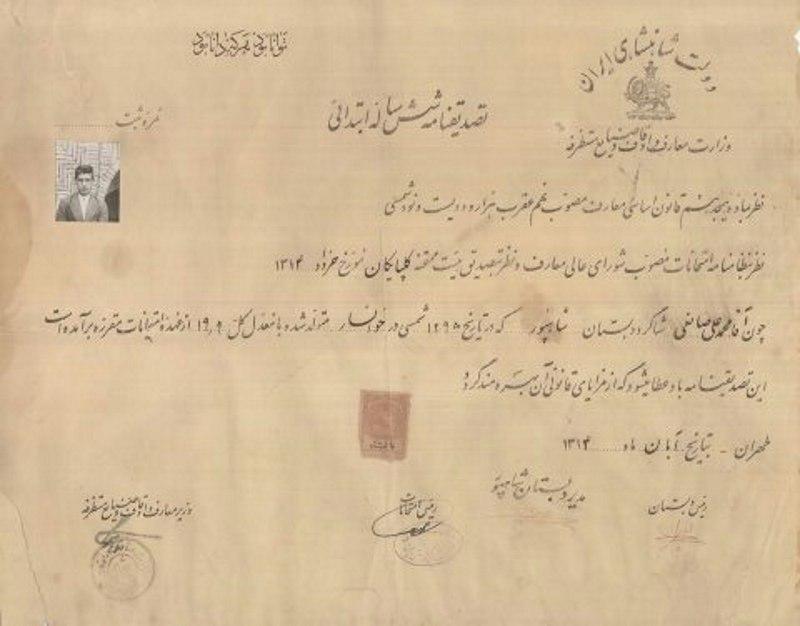 توانا بود هر که دانا بود
دولت شاهنشاهی ایران
وزارت معارف و اوقاف و صنایع مستظرفه
تصدیقنامه شش ساله ابتدائی
نمره ثبت
نظر بماده هیجدهم قانون اساسی معارف مصوب دهم عقرب هزار و دویست و نود شمسی
نظر بنظامنامه امتحانات مصوب شورای عالی معارف و نظر بتصدیق هیئت ممتحنه گلپایگان مورخ خرداد ۱۳۱۴
چون آقا محمد علی صافی شاگرد دبستان شاهپور که در تاریخ ۱۲۹۸ شمسی در خونسار متولد شده با معدل کل ۱۹٫۹ از عهده امتحانات مقرره برآمده است
این تصدیقنامه باو عطا میشود که از مزایای قانونی آن بهره مند گردد
طهران - بتاریخ آبان ماه ۱۳۱۴
رئیس دبستان
مدیر دبستان شاهپور
رئیس امتحانات
وزیر معارف و اوقاف و صنایع مستظرفه